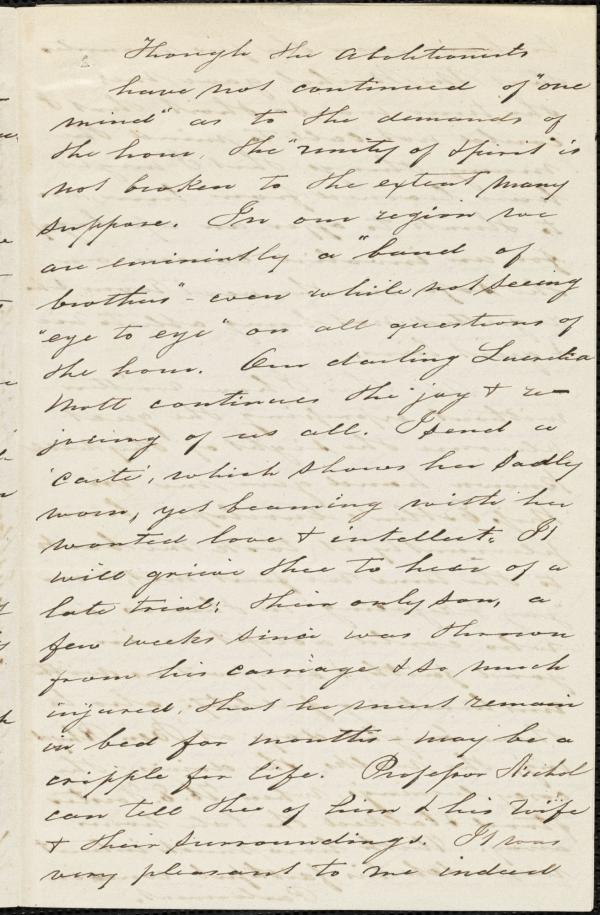 Though the Abolitionists
have not continued of "one
mind" as to the demands of
the hour, the "unity of spirit" is
not broken to the extent many
suppose. In our region we
are eminently a "band of
brothers" - even while not seeing
"eye to eye" on all questions of
the hour. Our darling Lucretia
Mott continues the 'joy & re-
joicing of us all. I send a
'carte', which shows her sadly
worn, yet beaming with her
wonted love & intellect. It
will grieve thee to hear of a
late trial; their only son, a
few weeks since was thrown
from his carriage & so much
injured, that he must remain
in bed for months - may be a
cripple for life. Professor Nichol
can tell thee of him & his wife
& their surroundings. It was
very pleasant to me indeed